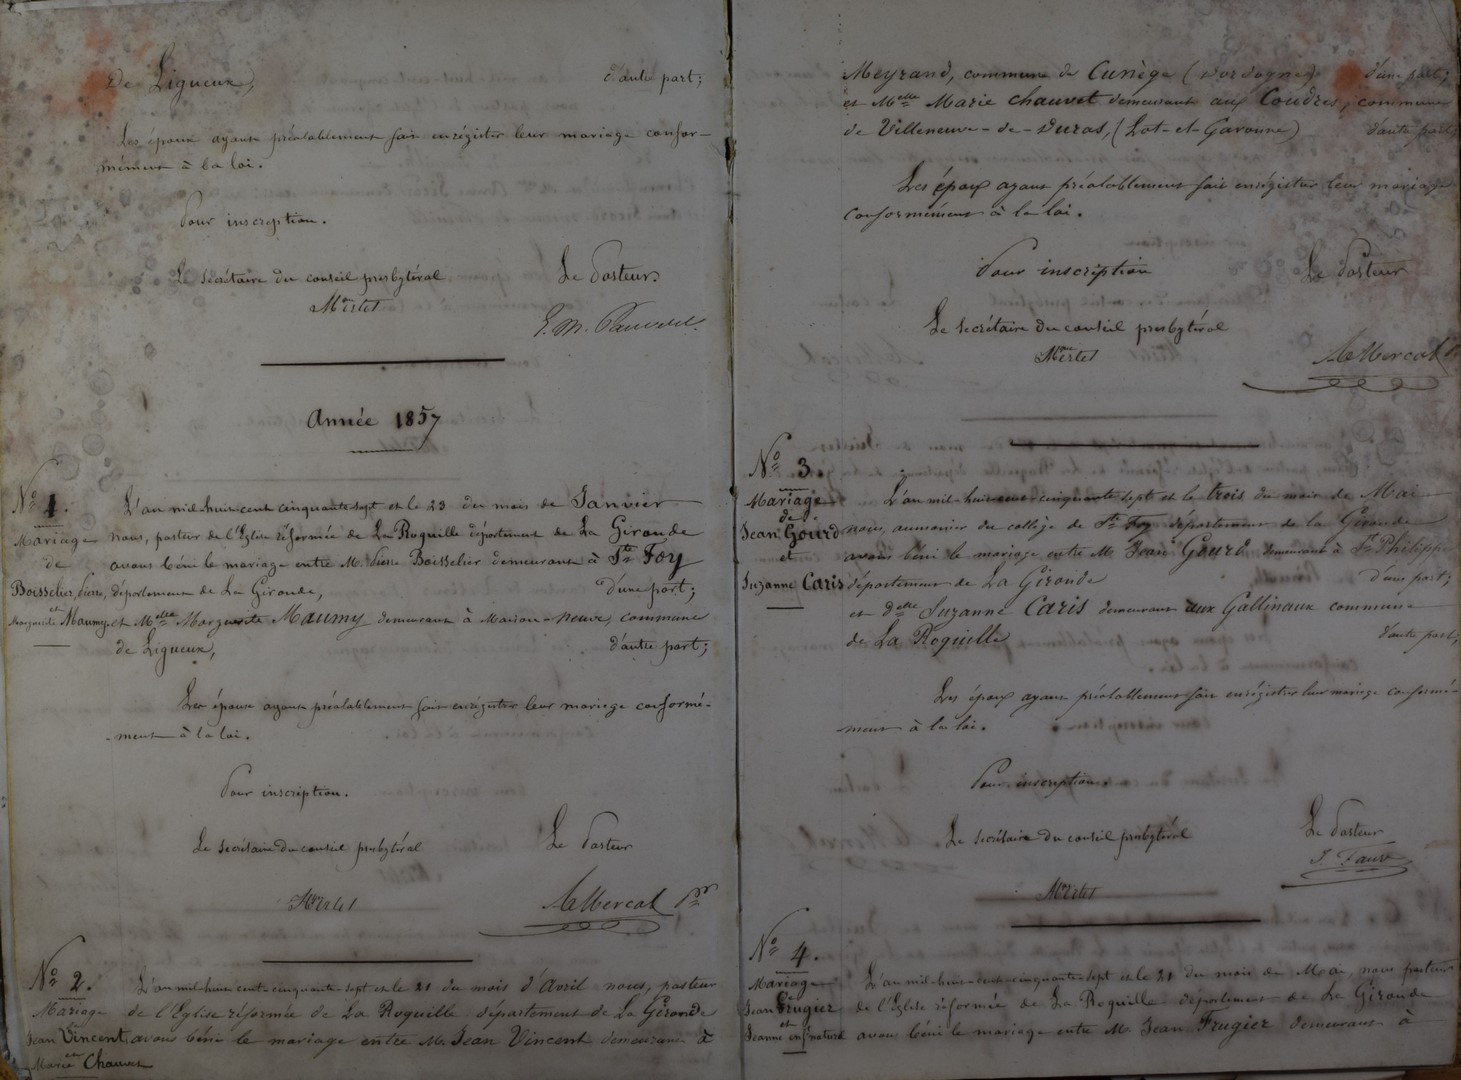 De Ligueux, d'autre part;
Les époux ayant préalablement fait enrégister leur mariage confor-
mément à la loi.
Pour inscription.
Le secrétaire du conseil presbytéral Le Pasteur.
Mertet
Année 1857
N° 1.
Mariage
de
Boisselier, Pierre,
et
Marguerite Maumy.
L'an mil-huit-cent cinquante-sept et le 23 du mois de Janvier
nous, pasteur de l'Eglise réformée de La Roquille département de La Gironde
avons béni le mariage entre M. Pierre Boisselier demeurant à Ste Foy
département de La Gironde, d'une part;
et Melle Marguerite Maumy demeurant à Maison-neuve, commune
de Ligueux, d'autre part;
Les époux ayant préalablement fait enrégister leur mariage conformé-
-ment à la loi.
Pour inscription.
Le secrétaire du conseil presbytéral Le Pasteur
Mertet A Mercat Pr
N° 2.
Mariage
de
Jean Vincent
et
Marie Chauvet
L'an mil-huit-cent-cinquante-sept et le 21 du mois d'Avril nous, pasteur
de l'Eglise réformée de La Roquille département de La Gironde
avons béni le mariage entre M. Jean Vincent demeurant à
Meyrand, commune de Cunège (Dordogne) d'une part;
et Melle Marie Chauvet demeurant aux Coudres, commune
de Villeneuve-de-Duras, (Lot-et-Garonne) d'autre part;
Les époux ayant préalablement fait enrégistrer leur mariage
conformément à la loi.
Pour inscription Le Pasteur
Le secrétaire du conseil presbytéral
Mertet A Mercat
N° 3.
Mariage
de
Jean Gourd
et
Suzanne Caris
L'an mil-huit-cent-cinquante-sept et le trois du mois de Mai
nous, aumonier du collège de Ste Foy département de la Gironde
avons béni le mariage entre M. Jean Gourd demeurant à St Philippe
département de La Gironde d'une part;
et delle Suzanne Caris demeurant aux Gallinaux commune
de La Roquille d'autre part;
Les époux ayant préalablement fait enrégistrer leur mariage conformé-
ment à la loi.
Pour inscription.
Le secrétaire du conseil presbytéral Le Pasteur
Mertet
N° 4.
Mariage
de
Jean Frugier
et
Jeanne
L'an mil-huit-cent-cinquante-sept et le 21 du mois de Mai, nous pasteur
de l'Eglise réformée de La Roquille département de La Gironde
avons béni le mariage entre M. Jean Frugier demeurant à